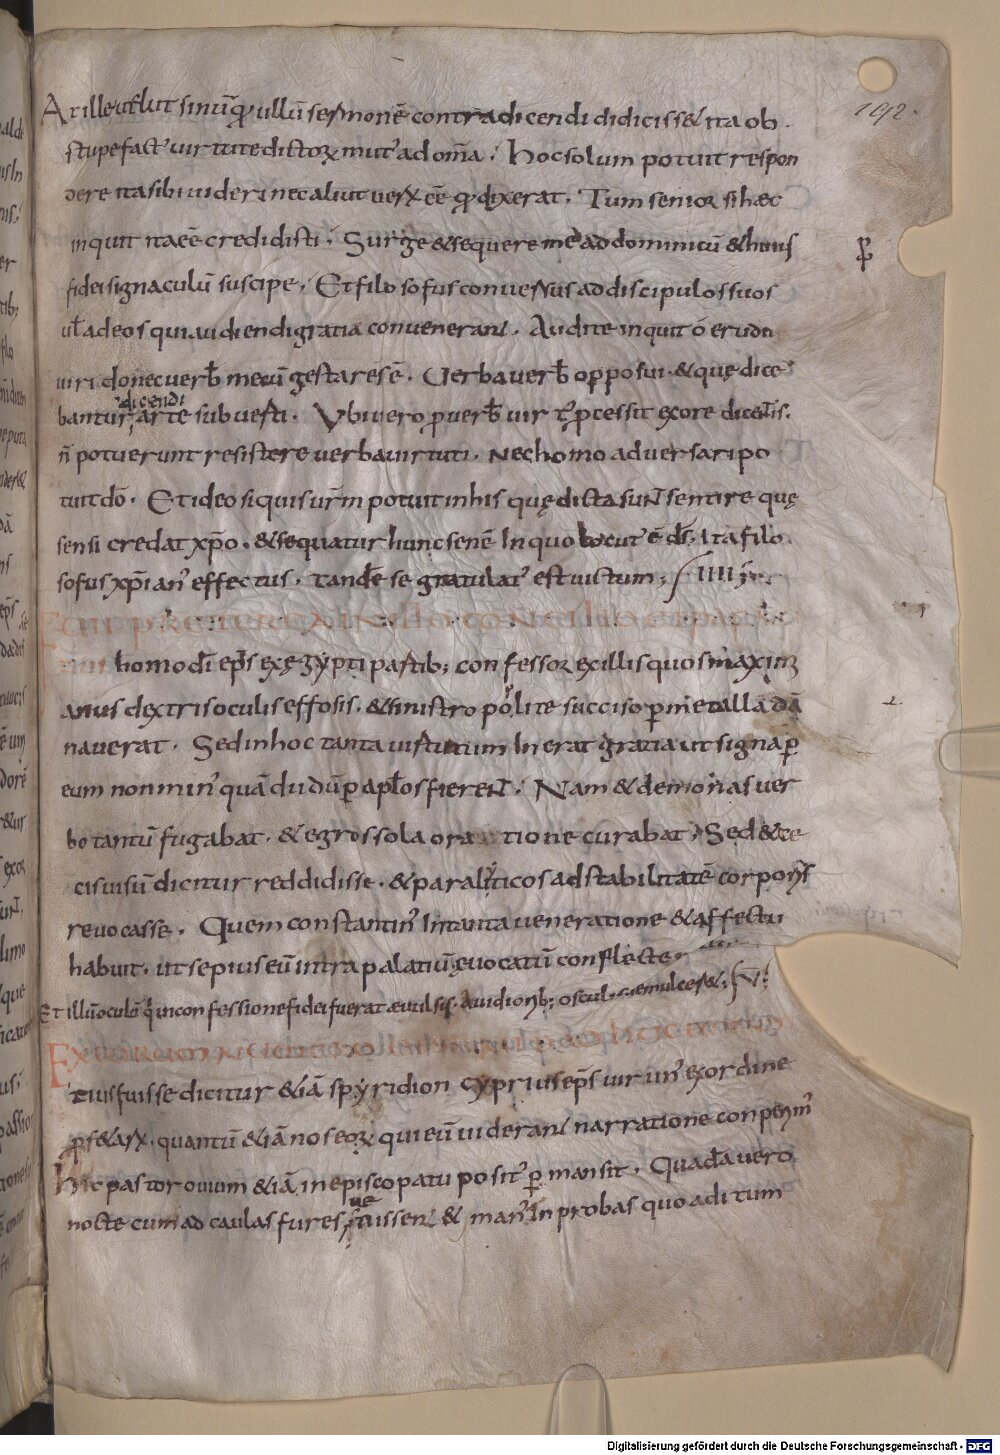 192.
At ille velut si nūquā ullū sermonē contradicendi didicisset ita ob
stupefact' virtute dictoꝝ mut' ad om̄a. hoc solum potuit respon
dere ita sibi videri nec aliut verū eē quod dixerat. Tum senior si hæc
inquit ita eē credidisti. Surge & sequere me ad dominicū & huius
fidei signaculū suscipe. Et filosofus conversus ad discipulos suos
vł ad eos qui audiendi gratia convenerant. Audite inquit o erudi
viri donec verb mecū gesta res ē. Verba verb opposui. & quę dice
dicendi
bantur arte subverti. Ubi vero p verb virt' pcessit ex ore dicentis.
n̄ potuerunt resistere verba virtuti. nec homo adversari po
tuit dō. Et ideo si quis vr̄m potuit in his quę dicta sunt sentire quę
sensi credat xp̄o. & sequatur hunc senē In quo locut' ē ds̄. Ita filo
sofus xp̄ian' effectus. tandē se gratulat' est victum; IIII
homo dī ep̄s ex ęgypti partib; confessor ex illis quos maximi
anus dextris oculis effosis. & sinistro poplite succiso p metalla dā
naverat. Sed in hoc tanta virtutum Inerat gratia ut signa p
eum non min' quā dudū p aplos fierent. Nam & demonas ver
bo tantū fugabat. & egros sola oratione curabat. Sed & ce
cis visū dicitur reddidisse. & paraliticos ad stabilitatē corporis
revocasse. Quem constantin' In tanta veneratione & affectu
habuit. ut sepius eū intra palatiū evocatū conflecte
Et illū oculū qui in confessione fidei fuerat ævulsus. avidiorib; osculis demulceret; V
tius fuisse dicitur & iā spyridion cyprius ep̄s vir un' ex ordine
pfetarū. quantū & iā nos eorū qui eū viderant narratione conperim'
Hic pastor ovium & iā in episcopatu posit' pmansit. Quadā vero
ve
nocte cum ad caulas fures nissent & man' Inprobas quo aditum
Digitalisierung gefördert durch die Deutsche Forschungsgemeinschaft - DFG